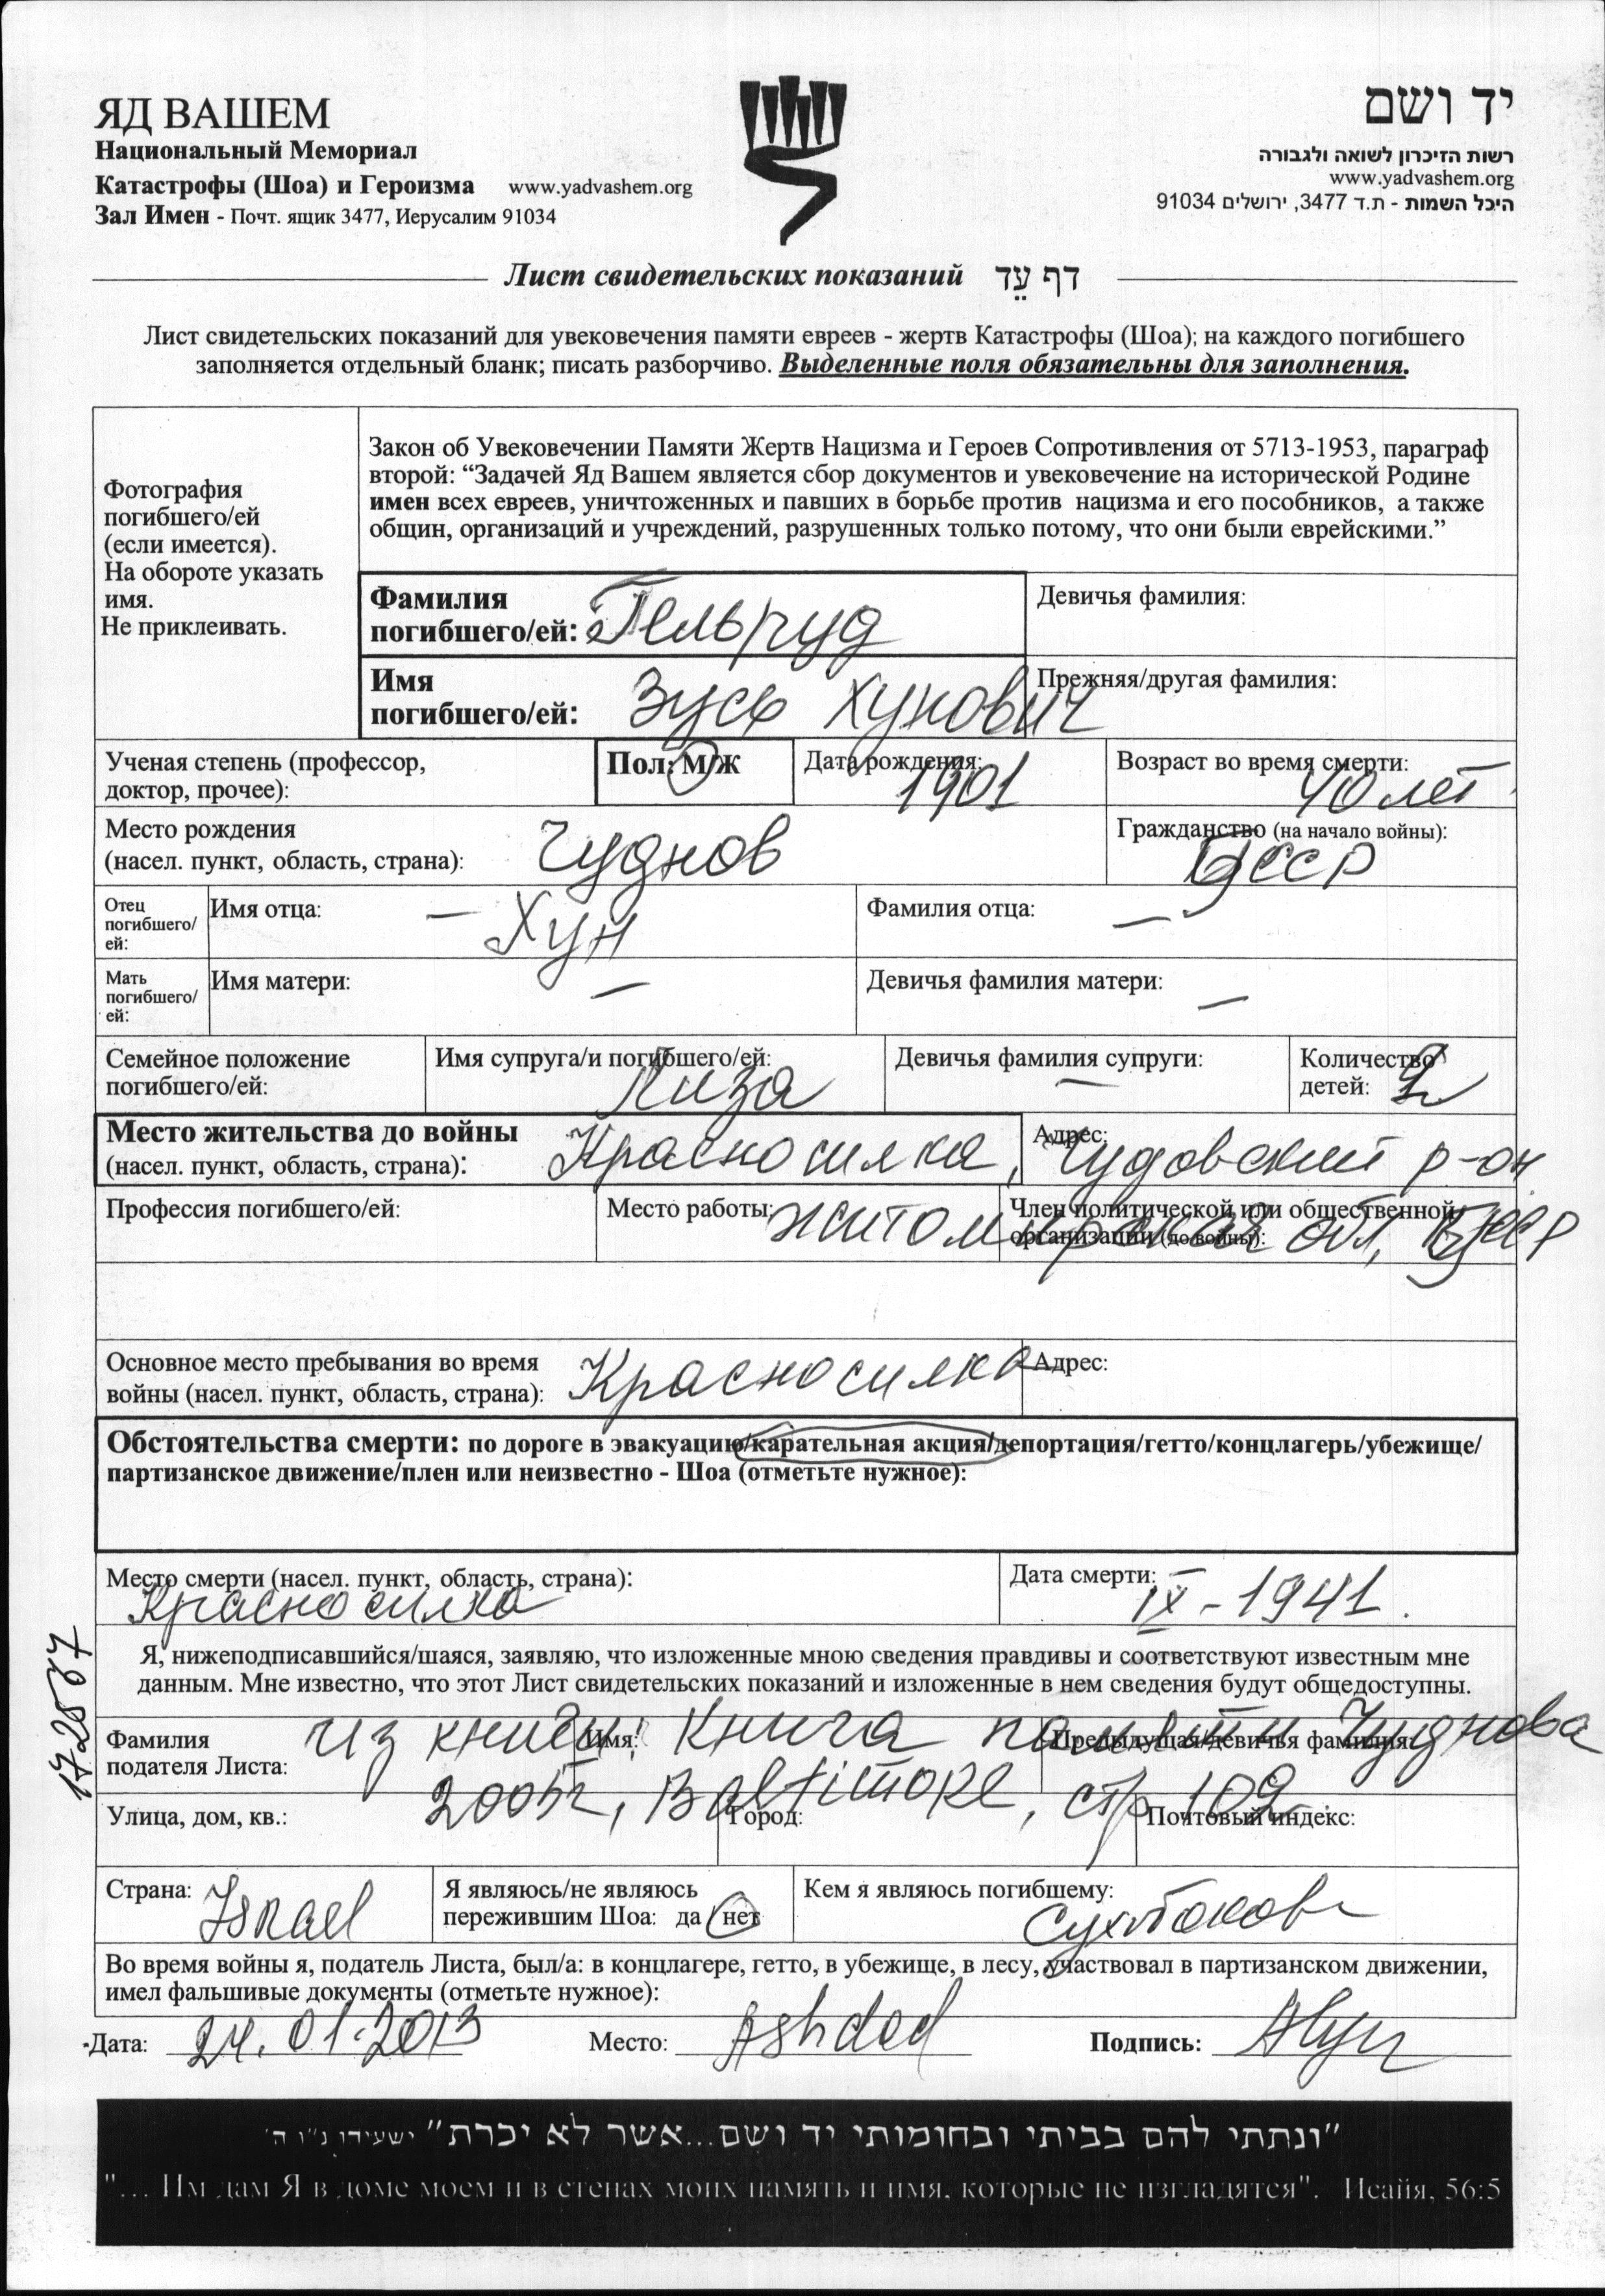 ЯД ВАШЕМ
יד ושם
Национальный Мемориал
Катастрофы (Шоа) и Героизма www.yadvashem.org
Зал Имен - Почт. ящик 3477, Иерусалим 91034
רשות הזיכרון לשואה ולגבורה
www.yadvashem.org
היכל השמות - ת.ד 3477, ירושלים 91034
Лист свидетельских показаний דף עֵד
Лист свидетельских показаний для увековечения памяти евреев - жертв Катастрофы (Шоа); на каждого погибшего
заполняется отдельный бланк; писать разборчиво. Выделенные поля обязательны для заполнения.
Фотография
погибшего/ей
(если имеется).
На обороте указать
имя.
Не приклеивать.
Закон об Увековечении Памяти Жертв Нацизма и Героев Сопротивления от 5713-1953, параграф
второй: “Задачей Яд Вашем является сбор документов и увековечение на исторической Родине
имен всех евреев, уничтоженных и павших в борьбе против нацизма и его пособников, а также
общин, организаций и учреждений, разрушенных только потому, что они были еврейскими.”
Фамилия
погибшего/ей: Гельруд
Девичья фамилия:
Имя
погибшего/ей: Зусь Хунович
Прежняя/другая фамилия:
Ученая степень (профессор,
доктор, прочее):
Пол: М/Ж
Дата рождения: 1901
Возраст во время смерти: 40 лет
Место рождения
(насел. пункт, область, страна): Чуднов
Гражданство (на начало войны): УССР
Отец
погибшего/
ей:
Имя отца: — Хун
Фамилия отца: —
Мать
погибшего/
ей:
Имя матери: —
Девичья фамилия матери: —
Семейное положение
погибшего/ей:
Имя супруга/и погибшего/ей: Лиза
Девичья фамилия супруги: —
Количество
детей: 2
Место жительства до войны
(насел. пункт, область, страна): Красносилка,
Адрес: Чудовский р-он
Профессия погибшего/ей:
Место работы:
Член политической или общественной
организации (до войны):
Житомирская обл, УССР
Основное место пребывания во время
войны (насел. пункт, область, страна): Красносилка
Адрес:
Обстоятельства смерти: по дороге в эвакуацию/карательная акция/депортация/гетто/концлагерь/убежище/
партизанское движение/плен или неизвестно - Шоа (отметьте нужное):
Место смерти (насел. пункт, область, страна):
Красносилка
Дата смерти: IX - 1941.
Я, нижеподписавшийся/шаяся, заявляю, что изложенные мною сведения правдивы и соответствуют известным мне
данным. Мне известно, что этот Лист свидетельских показаний и изложенные в нем сведения будут общедоступны.
Фамилия
подателя Листа:
Имя:
Предыдущая/девичья фамилия:
из книги: Книга памяти Чуднова
2005г, Baltimore, стр 102.
Улица, дом, кв.:
Город:
Почтовый индекс:
Страна: Israel
Я являюсь/не являюсь
пережившим Шоа: да / нет
Кем я являюсь погибшему:
Во время войны я, податель Листа, был/а: в концлагере, гетто, в убежище, в лесу, участвовал в партизанском движении,
имел фальшивые документы (отметьте нужное):
Дата: 24.01.2013
Место: Ashdod
Подпись:
"ונתתי להם בביתי ובחומותי יד ושם...אשר לא יכרת" ישעיהו נ"ו ה'
"... Им дам Я в доме моем и в стенах моих память и имя, которые не изгладятся". Исайя, 56:5